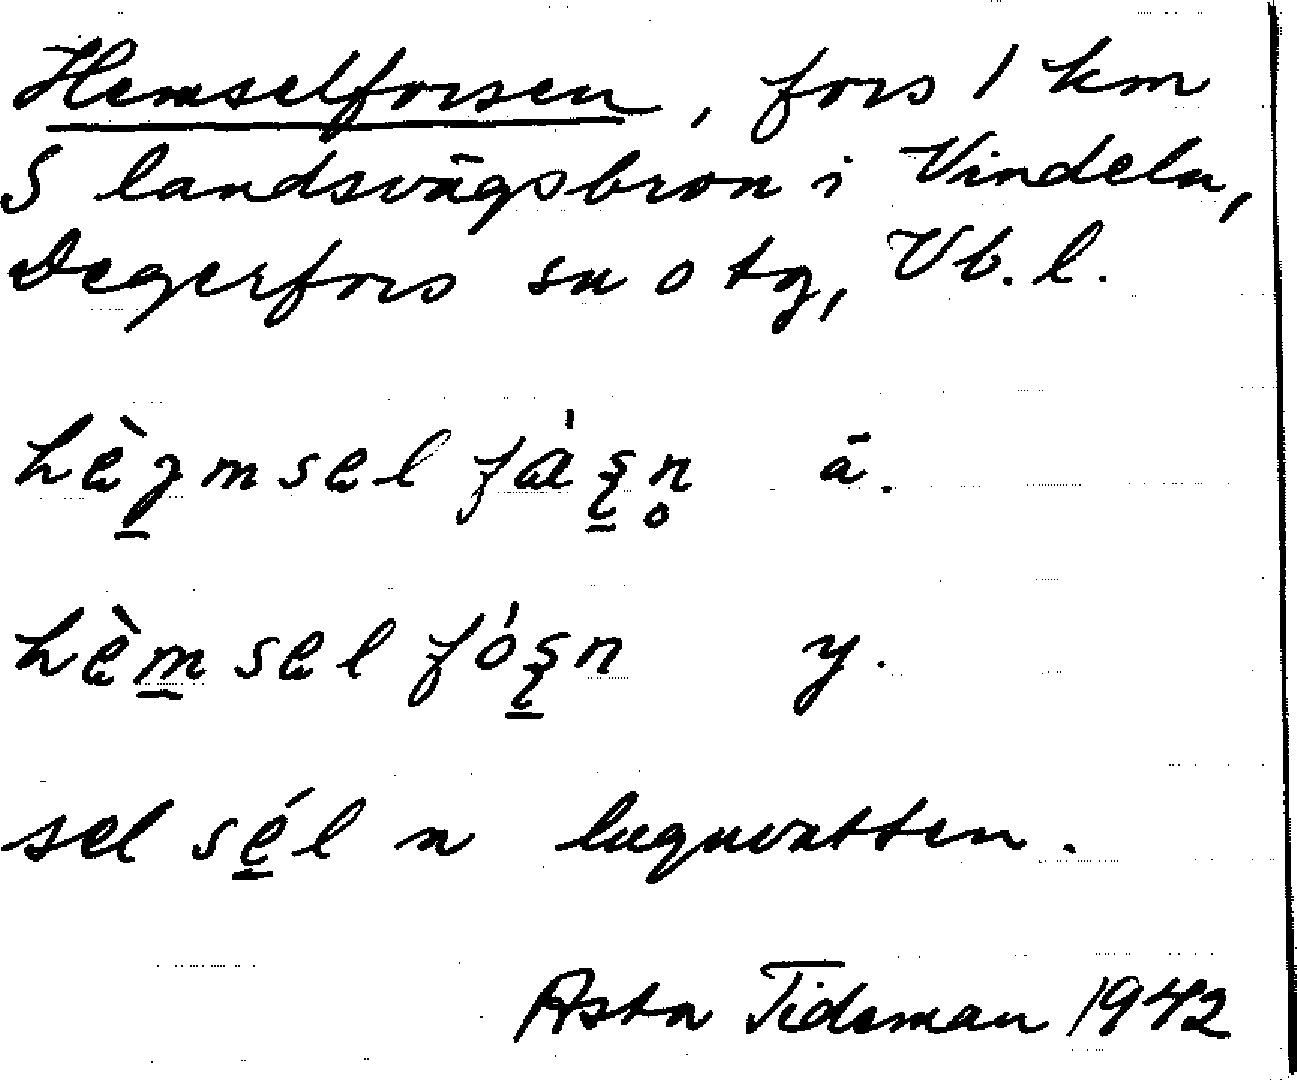 Hemselforsen, fors 1 km
S landsvägsbron i Vindeln,
Degerfors sn o tg, Vb. l.
ä.
y.
sel sél n lugnvatten.
Asta Tideman 1942